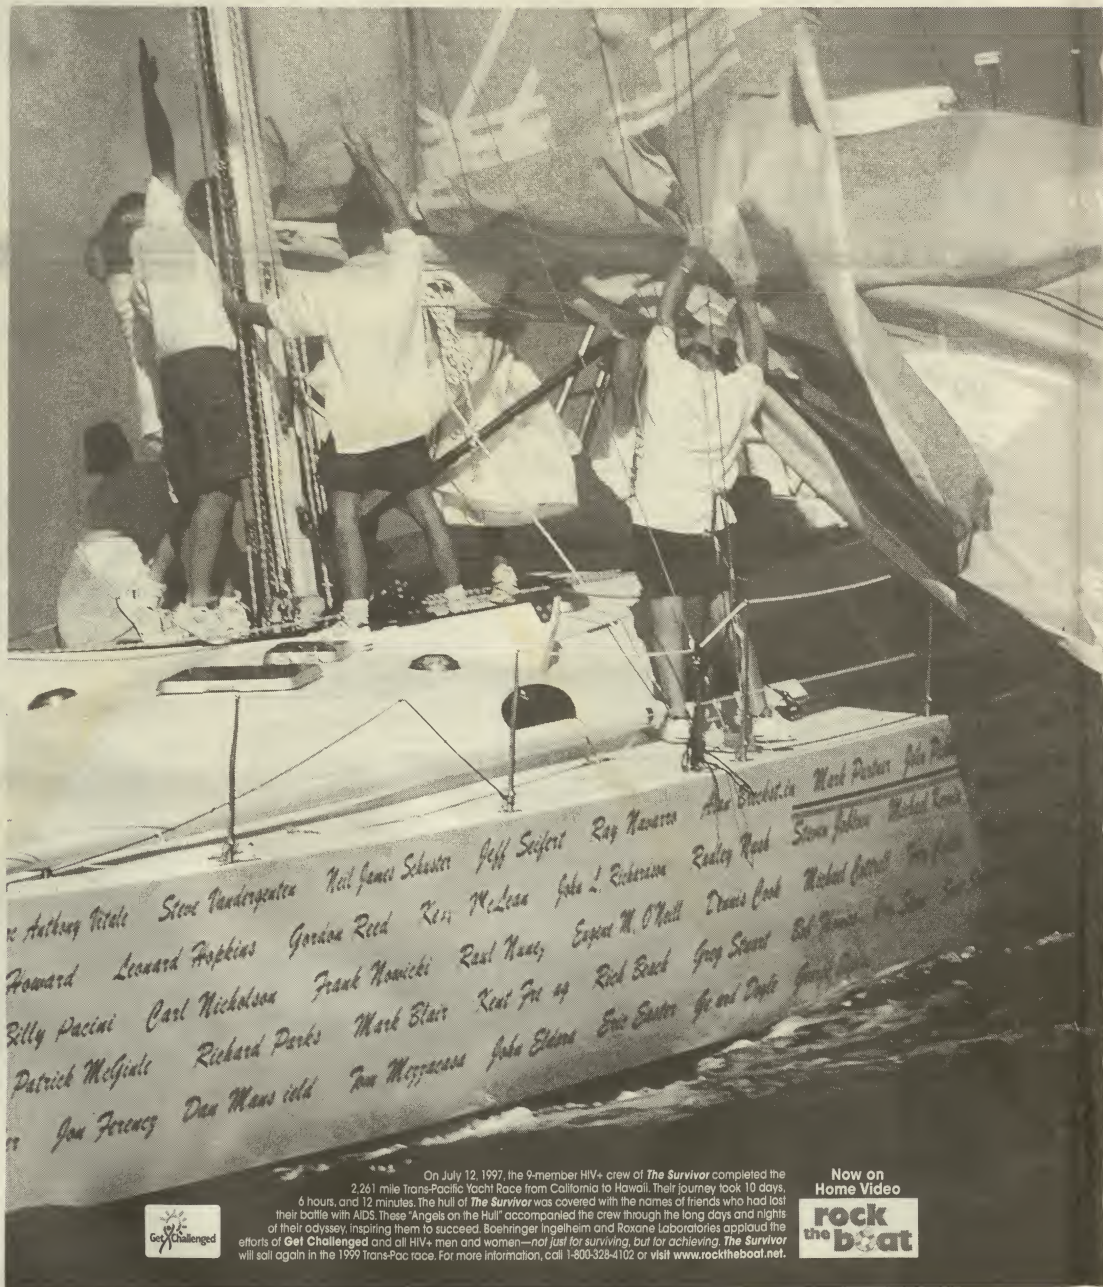 Anthony Vitale Steve Vandergenten Neil James Schuster Jeff Seifert Ray Navarro Mark Partner John
Howard Leonard Hopkins Gordon Reed McLean John L. Richardson Nash Steven Michael
Billy Pacini Carl Nicholson Frank Nowicki Raul Nunez Eugene M. O'Neill Dennis Cook Michael
Patrick McGinle Richard Parks Mark Blair Kent Rich Beach Greg Stuart Bob
Jon Ferencz Dan Mans ield Tom Mezzacasa John Eric Doyle George
On July 12, 1997, the 9-member HIV+ crew of The Survivor completed the
2,261 mile Trans-Pacific Yacht Race from California to Hawaii. Their journey took 10 days,
6 hours, and 12 minutes. The hull of The Survivor was covered with the names of friends who had lost
their battle with AIDS. These "Angels on the Hull" accompanied the crew through the long days and nights
of their odyssey, inspiring them to succeed. Boehringer Ingelheim and Roxane Laboratories applaud the
efforts of Get Challenged and all HIV+ men and women—not just for surviving, but for achieving. The Survivor
will sail again in the 1999 Trans-Pac race. For more information, call 1-800-328-4102 or visit www.rocktheboat.net.
Get Challenged
Now on
Home Video
rock
the boat